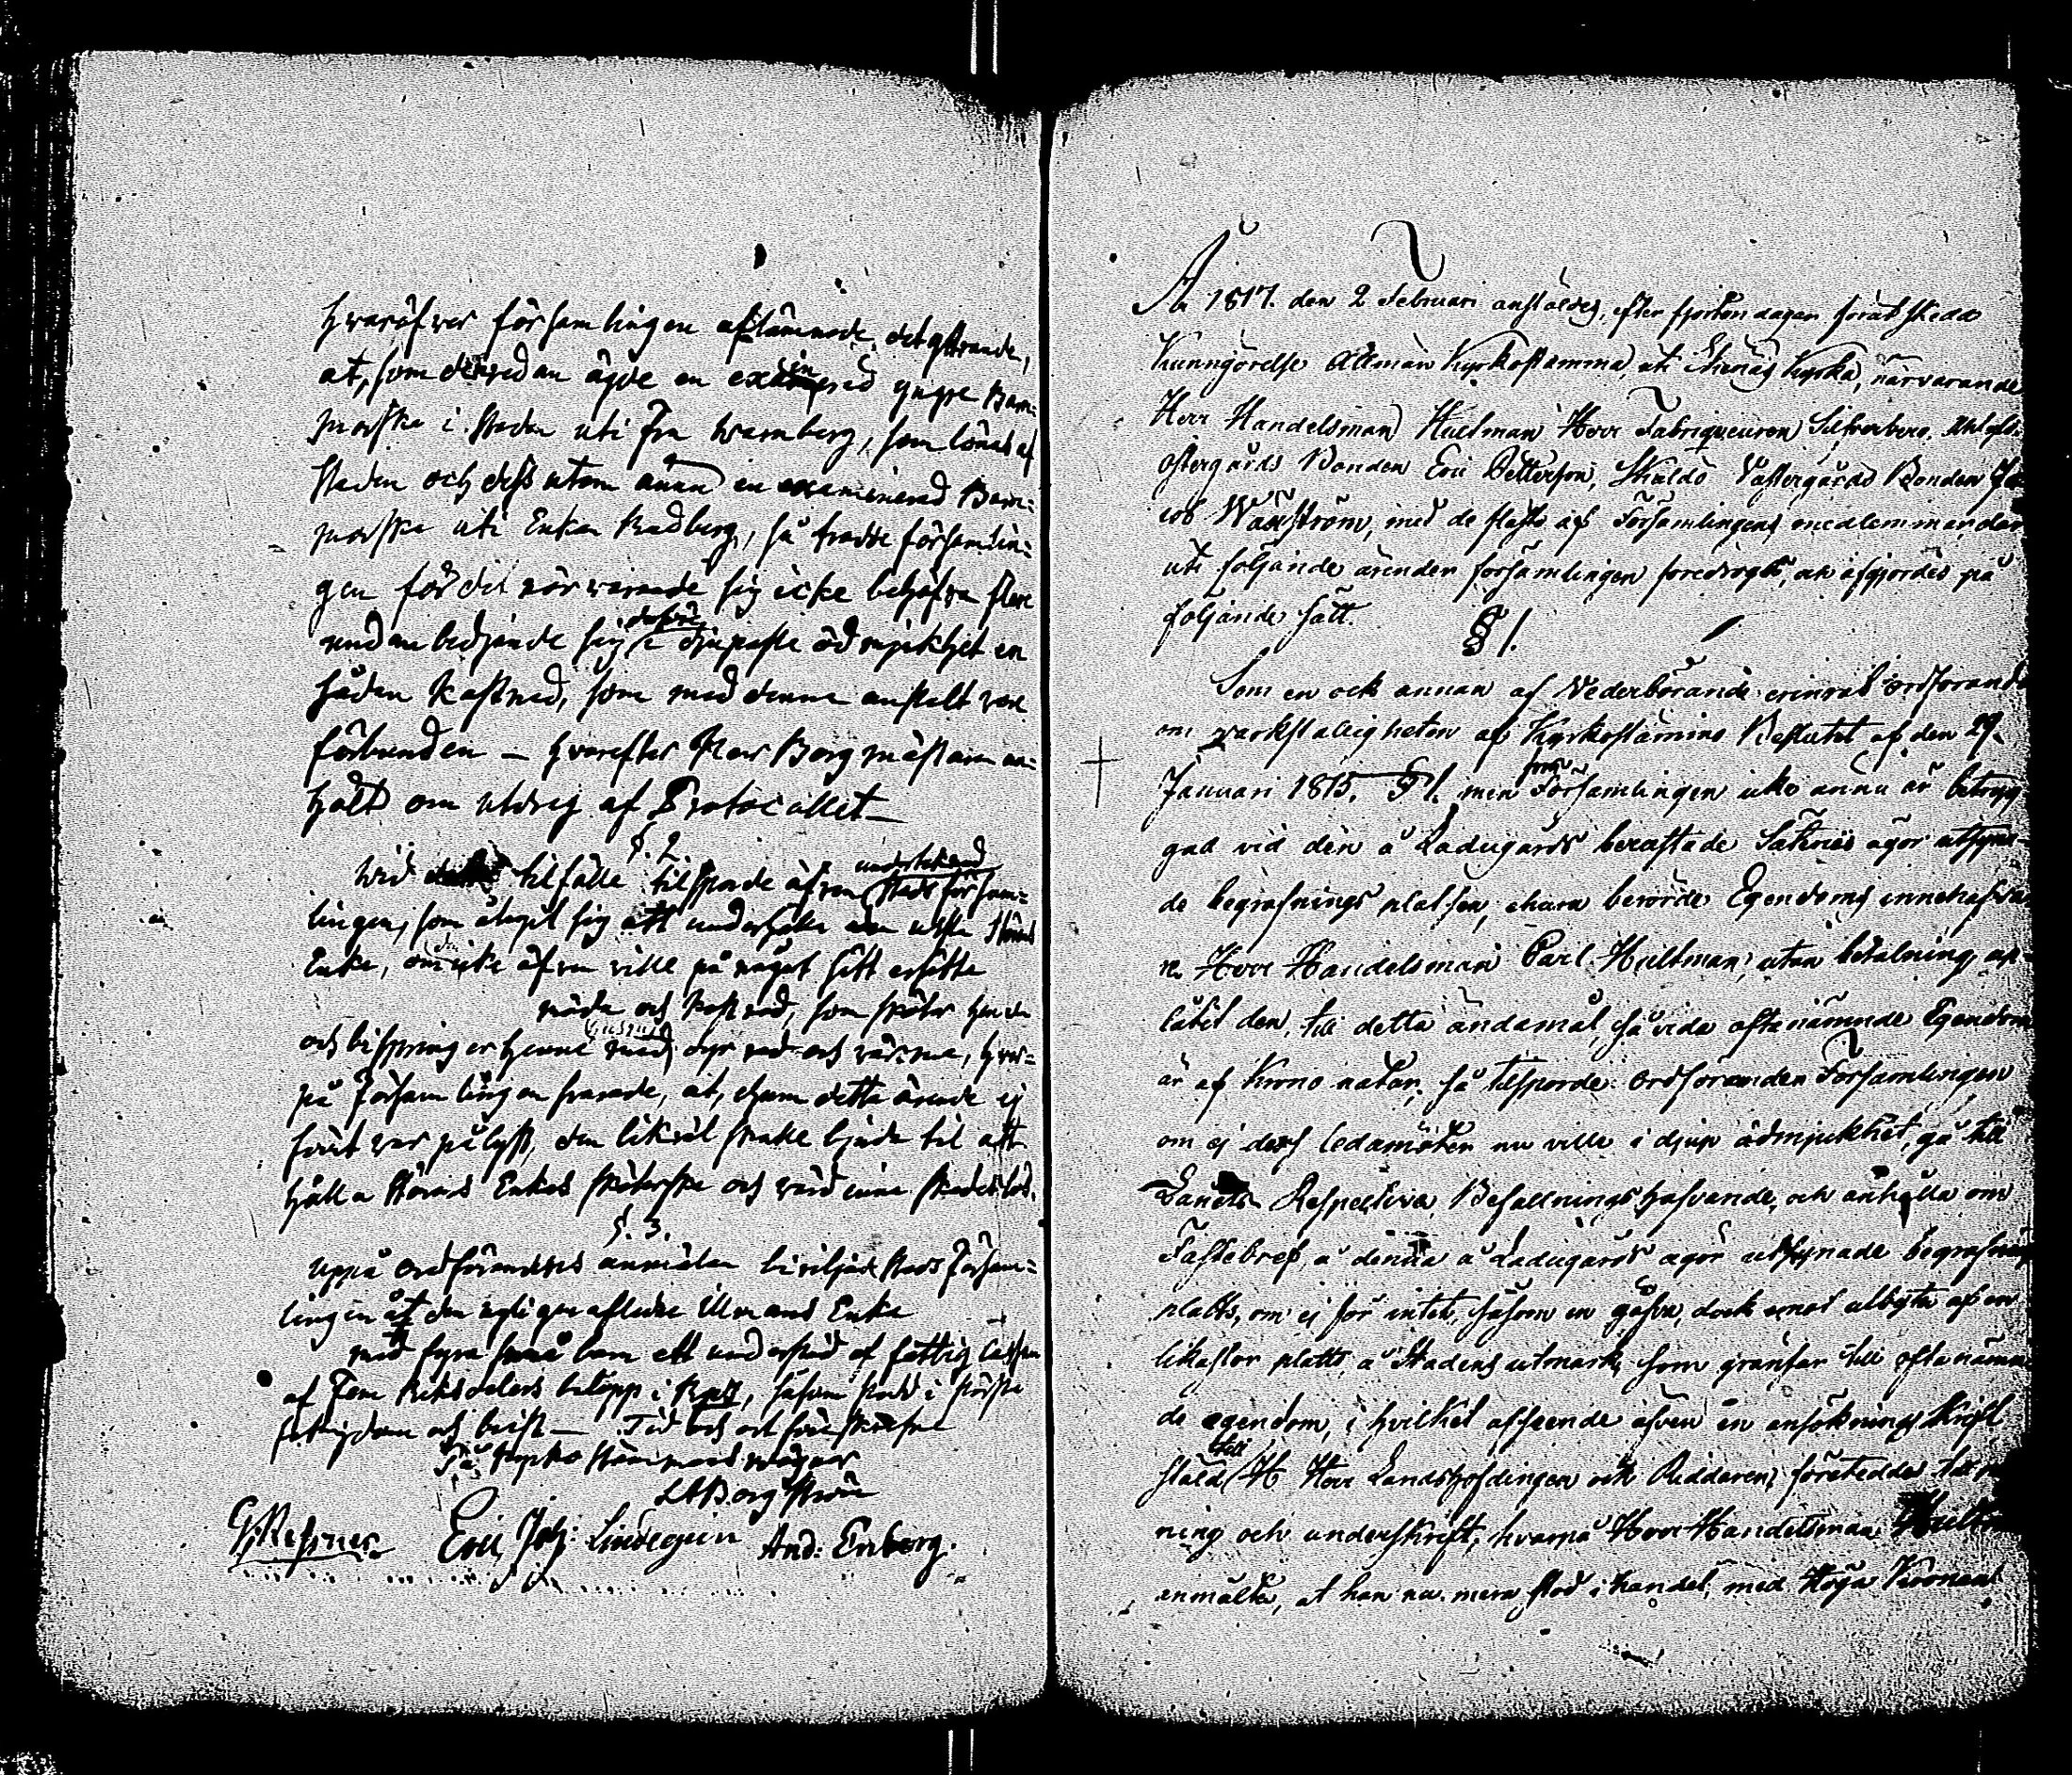 hvaröfver församlingen aflämnade, det yttrande,
at, som den redan ägde en examinerad yngre Barn-
morska i Staden uti Fru Warnberg, som lönas af
Staden och dessutom ännu en examinerad Barn-
morska uti Enkan Radberg, så trodde församlin-
gen för det närvarande sig icke behöfva flere
undanbedjande sig derföre i djupaste ödmjukhet en
sådan kostnad, som med denna anstalt vore
förbunden — hvarefter Herr Borgmästaren an-
höllt om utdrag af Protocollet —
§. 2
Wid tilfälle tilsporde äfven undertecknad Stads försam-
lingen, som åtagit sig att underhålla
Enka, om den icke äfven ville på något sätt ersätta
möda och kostnad, som sköter henne
och bispringer henne med husrum dyr ved och värme, hvar-
på Församlingen svarade, at, ehuru detta ärende ej
förut var pålyst, den likväl skulle bjuda til att
hålla Enkas sköterska och värdinna skadeslös.
§. 3.
Uppå Ordförandens anmälan beviljade Stads Försam-
lingen åt den nyligen aflidne Ullmans Enka
med fyra små barn ett understöd af fattig Cassan
af Fem Riksdalers belopp i , såsom stadd i största
fattigdom och brist — Tid och ort föreskrefne
På Kyrko Stämmans vägnar
Borgström
Eric Joh: Lindeqvin And: Enberg.
År 1817. den 2 Februari anstäldes, efter fjorton dagar förut skedd
Kungörelse Allmän Kyrkostämma, uti Ekenäs Kyrka, närvarande
Herr Handelsman Hultman Herr Fabriqueuren Silfverberg,
östergårds Bonden Eric Petterson, Skåldö Västergårds Bonden Ja-
cob Wallström, med de fläste af Församlingens medlemmar, der
uti följande ärenden församlingen föredrogs, och afgjordes på
följande sätt.
§ 1.
Som en och annan af Vederbörande erinrat ordförande
om värkställigheten af Kyrkostämmo Beslutet af den 29.
Januari 1815. § 1. men som Församlingen icke ännu är betryg-
gad vid den å Ladugårds ägor utsyna-
de begrafnings platsen, ehuru berörde Egendoms innehafva-
re Herr Handelsman Carl Hultman, utan betalning up-
låtit den, till detta ändamål, så vida oftanämnde Egendom
är af Krono natur, så tilsporde Ordföranden Församlingen
om ej dess ledamöter nu ville i djup ödmjukhet, gå till
Landets Respective Befallningshafvande, och anhålla om
Fastebref, å denna å Ladugårds ägor utsynade begrafnings
platts, om ej för intet, såsom en gåfva, dock emot utbyte af en
likastor platts å Stadens utmark, som gränsar till oftanämn-
de egendom, i hvilket afseende äfven en ansöknings Skrift
ställd till H Herr Landshöfdingen och Riddaren, företeddes till
ning och underskrift, hvarpå Herr Handelsman Hult-
anmälte, at han nu mera stod i handel med Höga Kronan